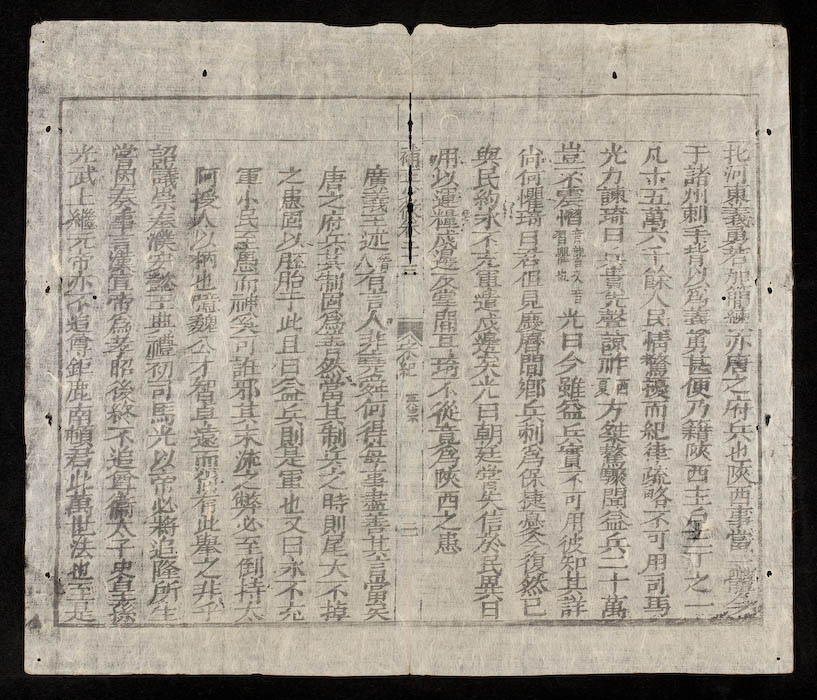 北河東義勇若加簡練亦唐之府兵也陝西事當一體今
于諸州刺手背以爲義勇甚便乃籍陝西主戶三丁之一
凡十五萬六千餘人民情驚擾而紀律疏略不可用司馬
光力諫琦曰兵貴先聲諒祚西夏方桀驁聞益兵二十萬
豈不震慴光曰今雖益兵實不可用彼知其詳
尙何懼琦曰君但見慶曆間鄉兵刺爲保捷憂今復然已
與民約永不充軍遣戍邊矣光曰朝廷嘗失信於民異日
用以運糧戍邊反掌間耳琦不從竟爲陝西之患
廣義王述晉人有言人非堯舜何得每事盡善其言當矣
唐之府兵其制固爲善然當其制兵之時則尾大不掉
之患固以胚胎于此且曰益兵則是軍也又曰永不充
軍小民至愚而神奚可誑邪其末流之弊必至倒持太
阿授人以柄也噫魏公才智卓遠而猶有此擧之非乎
詔議崇奉濮安懿王典禮初司馬光以帝必將追隆所生
嘗因奏事言漢宣帝爲孝昭後終不追尊衞太子史皇孫
光武上繼元帝亦不追尊鉅鹿南頓君此萬世法也至是